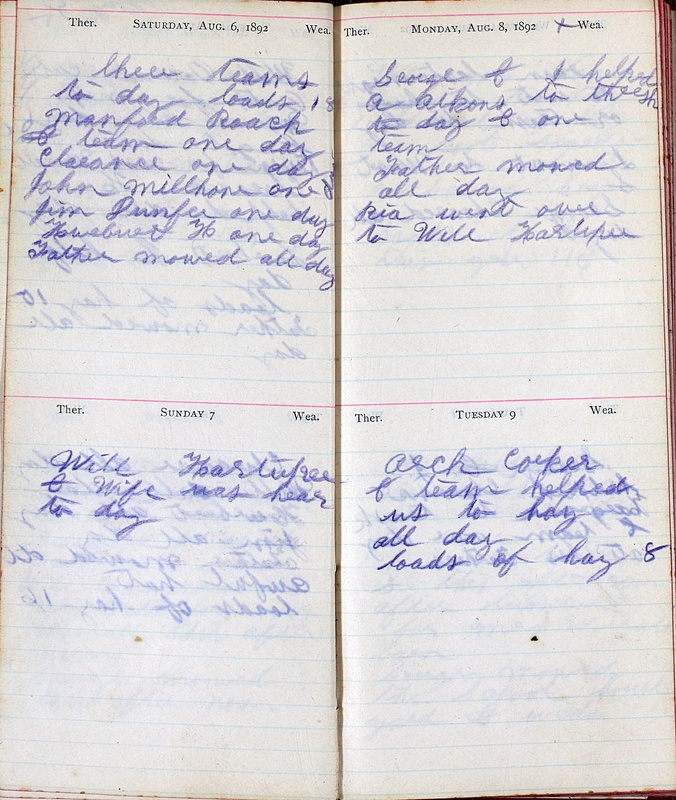 Ther. SATURDAY, AUG. 6, 1892 Wea.
three teams
to day loads 18
Manford Roach
& team one day
Clarance one day
John Millhone one d
Jim Dunfee one day
H one day
Father mowed all day
Ther. SUNDAY 7 Wea.
Will Hartupee
& Wife was hear
to day
Ther. MONDAY, AUG. 8, 1892 + Wea.
George & I helped
A Atkons to thresh
to day & one
team
Father mowed
all day
Ria went over
to Will Hartupee
Ther. TUESDAY 9 Wea.
Arch Corker
& team helped
us to hay
all day
loads of hay 8